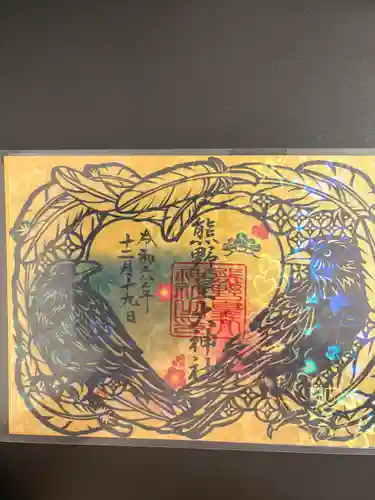 熊野皇大神社
令和六年
十二月二十九日